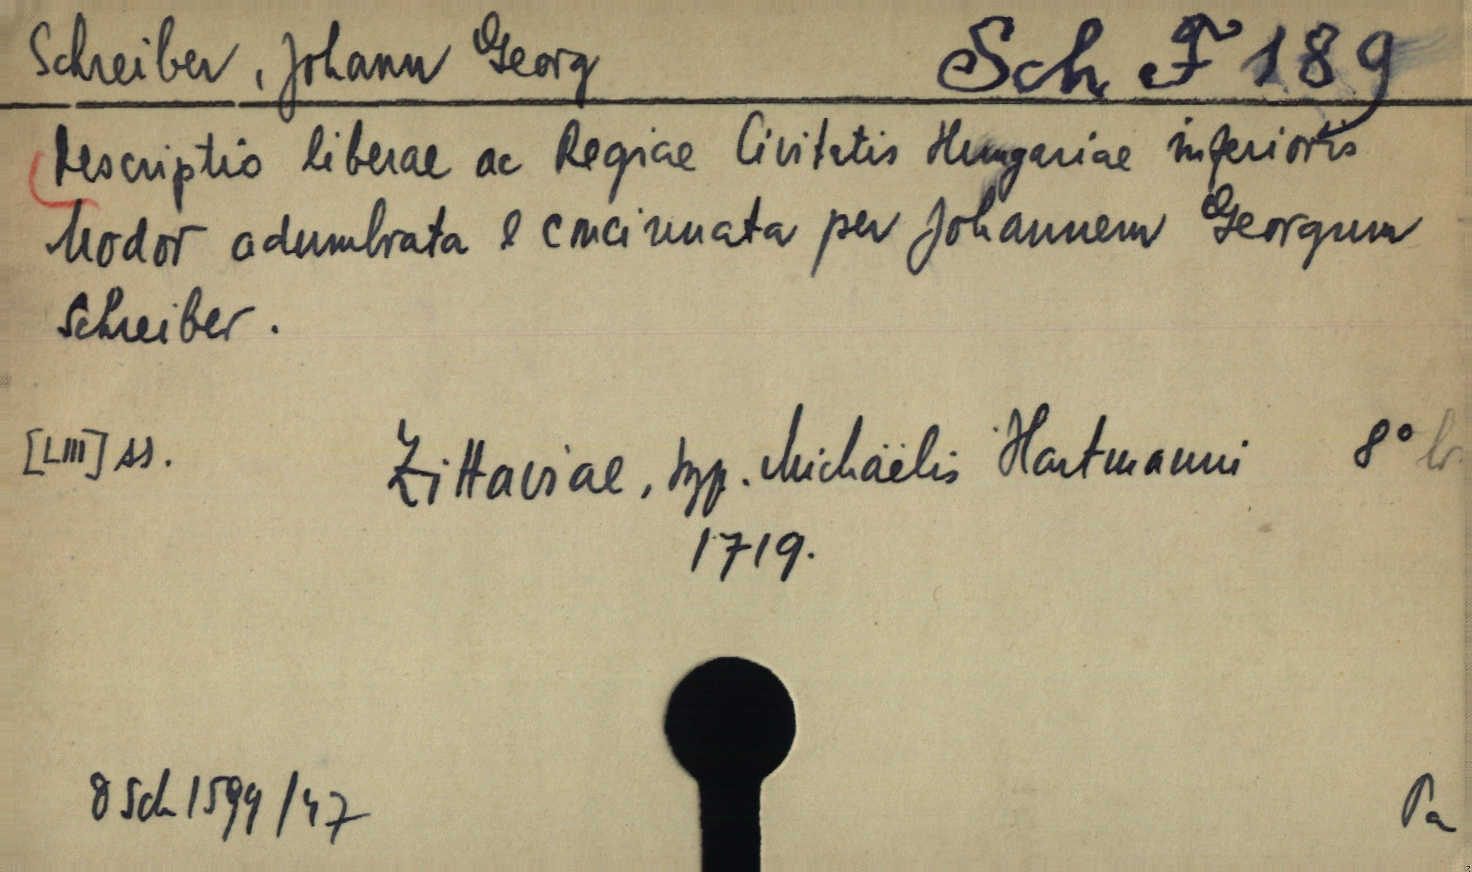 Schreiber, Johann Georg Sch F 189
Descriptio liberae ac Regiae Civitatis Hungariae inferioris
Modor adumbrata & concinnata per Johannem Georgium
Schreiber.
[LIII] ss. Zittaviae, typ. Michaëlis Hartmanni 8°
1719.
8 Sch 1599/47 Pa